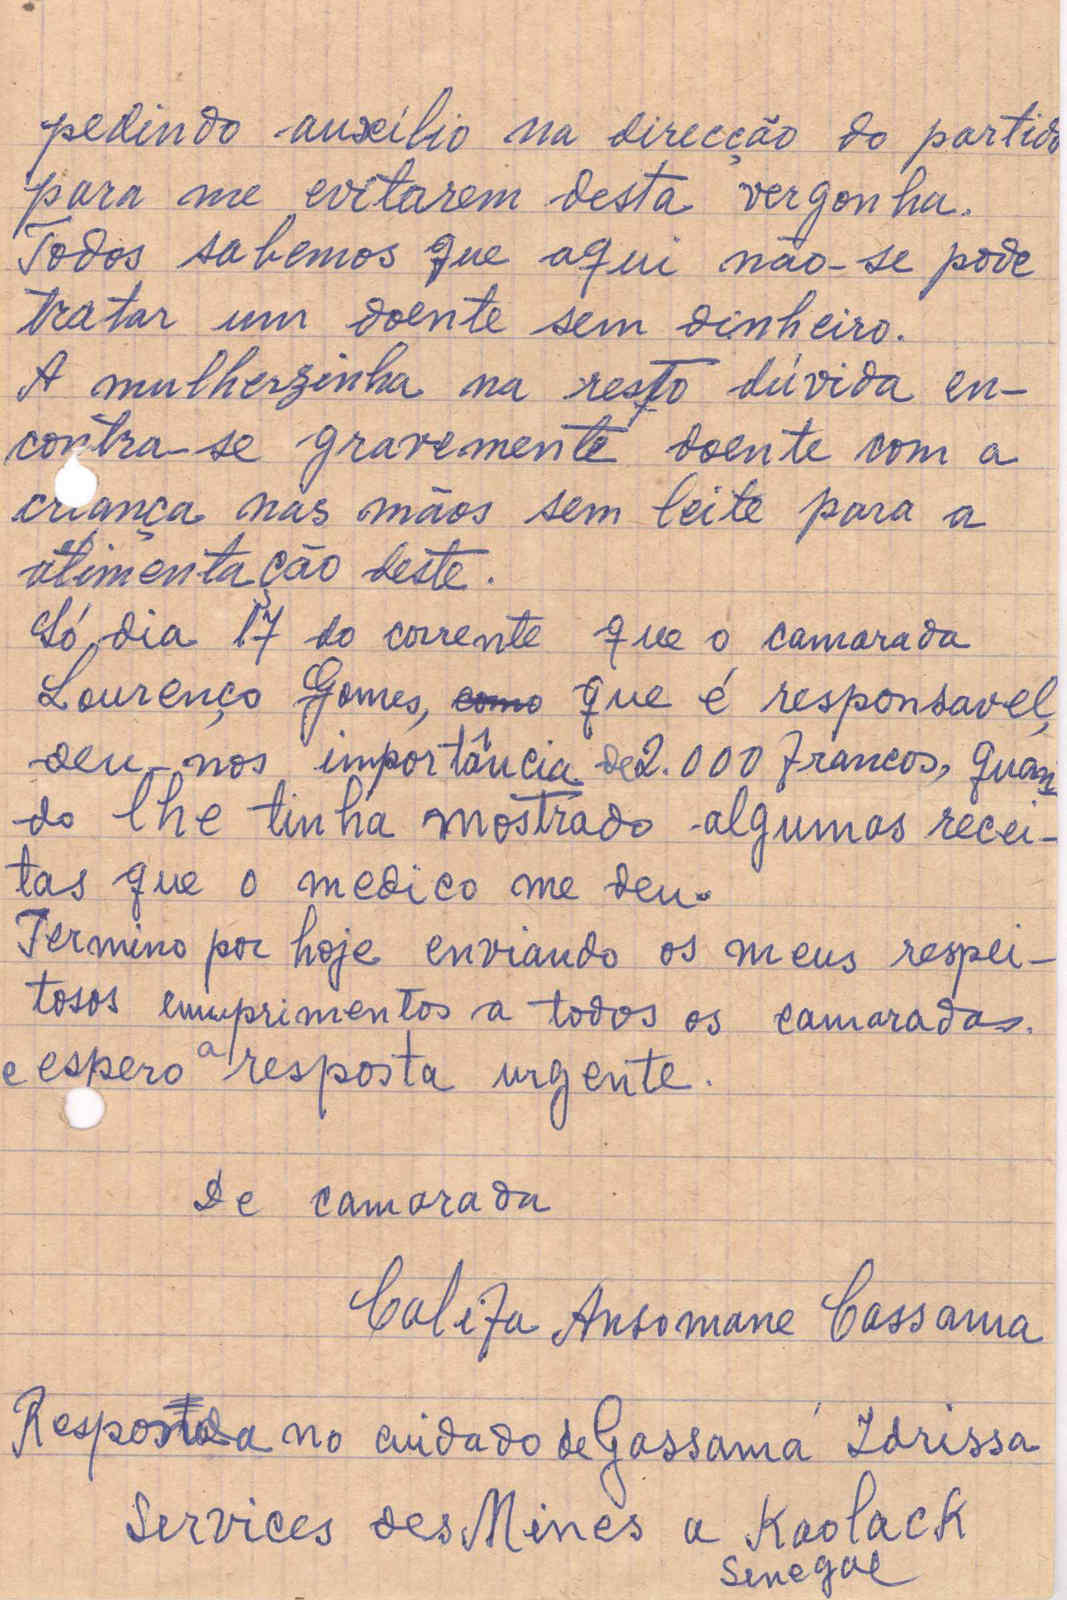 pedindo auxílio na direcção do partido
para me evitarem desta vergonha.
Todos sabemos que aqui não-se pode
tratar um doente sem dinheiro.
A mulherzinha na resto dúvida en-
contra-se gravemente doente com a
criança nas mãos sem leite para a
alimentação deste.
Só dia 17 do corrente que o camarada
Lourenço Gomes, como que é responsavel,
deu-nos importância de 2.000 francos, quan
do lhe tinha mostrado algumas recei-
tas que o medico me deu.
Termino por hoje enviando os meus respei-
tosos cumprimentos a todos os camaradas.
e espero a resposta urgente.
De camarada
Califa Ansomane Cassama
Resposta no cuidado de Gassamá Idrissa
Services des Mines a Kaolack
Senegal